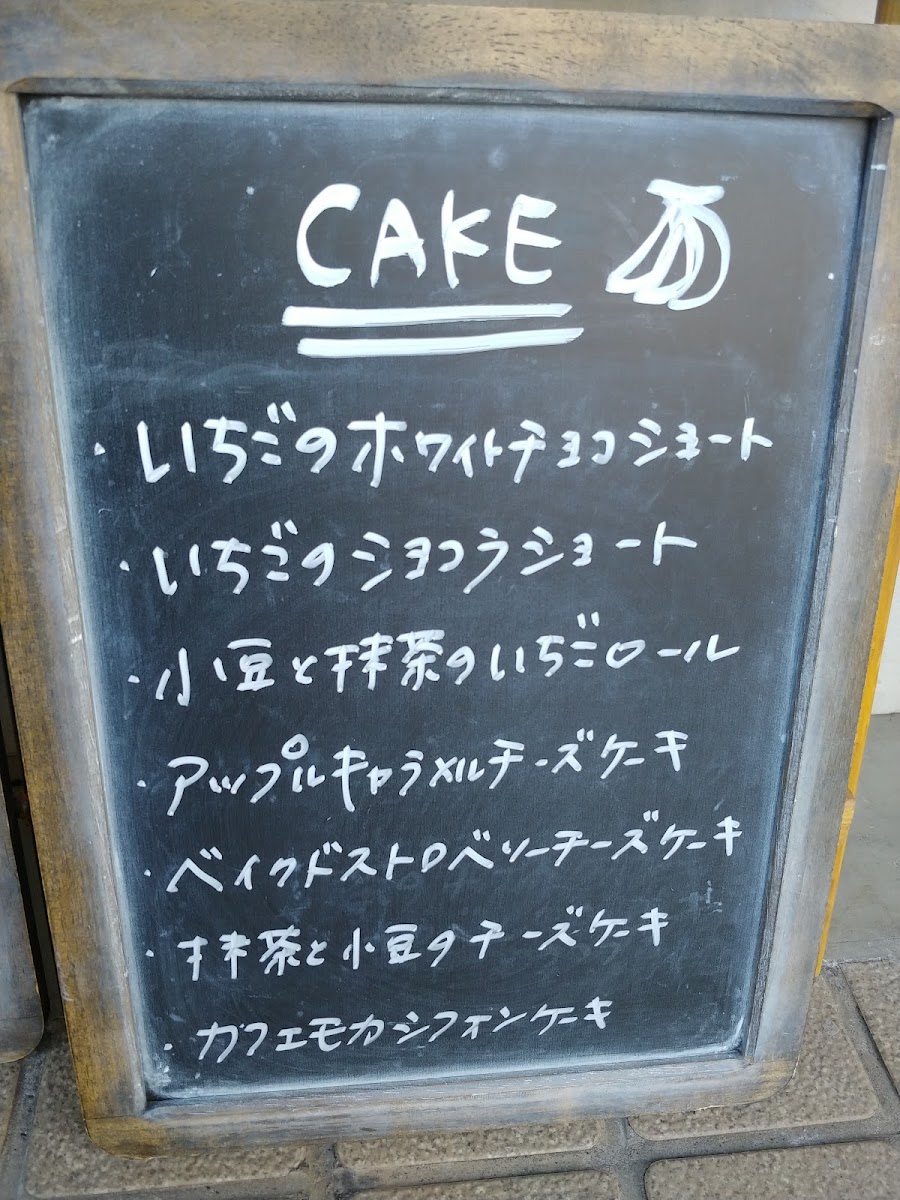 CAKE
・いちごのホワイトチョコショート
・いちごのショコラショート
・小豆と抹茶のいちごロール
・アップルキャラメルチーズケーキ
・ベイクドストロベリーチーズケーキ
・抹茶と小豆のチーズケーキ
・カフェモカシフォンケーキ